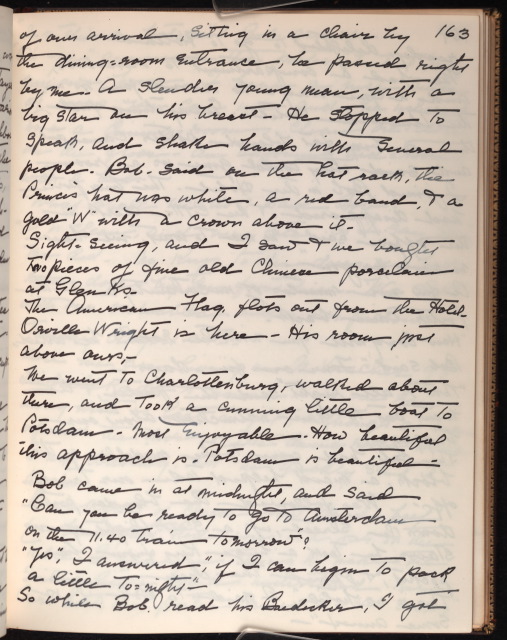 163
of our arrival, sitting in a chair by
the dining-room entrance, he passed right
by me. A slender young man, with a
big star on his breast. He stopped to
speak, and shake hands with several
people. Bob said on the hat rack, the
Princes hat was white, a red band, & a
gold "W" with a crown above it.
Sight-seeing, and I saw & we bought
two pieces of fine old Chinese porcelain
at Glenks.
The American Flag flots out from the Hotel.
Orville Wright is here - His room just
above ours,-
We went to Charlottenburg, walked about
there, and took a cunning little boat to
Potsdam - most enjoyable. How beautiful
this approach is. Potsdam is beautiful -
Bob came in at midnight, and said
"Can you be ready to go to Amsterdam
on the 11.40 train tomorrow"?
"Yes", I answered, "if I can begin to pack
a little to-night" -
So while Bob read his Baedeker, I got